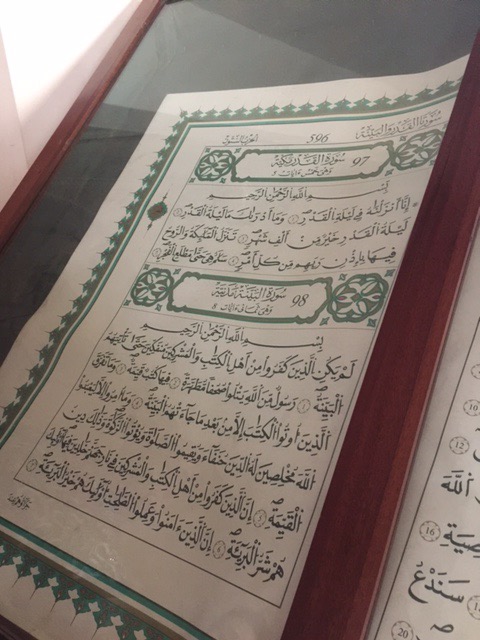 سُورَتَا الْقَدْرِ وَالْبَيِّنَةِ 596 الحزب الستون
97 سُورَةُ الْقَدْرِ مَكِّيَّة
وَهْىَ خَمْسُ ءَايَاتٍ
بِسْمِ اِللَّهِ الرَّحْمَٰنِ الرَّحِيمِ
إِنَّا أَنزَلْنَٰهُ فِى لَيْلَةِ اِلْقَدْرِ 1 وَمَا أَدْر۪ىٰكَ مَا لَيْلَةُ الْقَدْرِ 2
لَيْلَةُ الْقَدْرِ خَيْرٌ مِّنْ أَلْفِ شَهْرٍ 3 تَنَزَّلُ الْمَلَٰٓئِكَةُ وَالرُّوحُ
فِيهَا بِإِذْنِ رَبِّهِم مِّن كُلِّ أَمْرٍ 4 سَلَٰمٌ هِىَ حَتَّىٰ مَطْلَعِ اِلْفَجْرِ 5
98 سُورَةُ الْبَيِّنَةِ مَدَنِيَّة
وَهْىَ ثَمَانِى ءَايَاتٍ
بِسْمِ اِللَّهِ الرَّحْمَٰنِ الرَّحِيمِ
لَمْ يَكُنِ اِلذِينَ كَفَرُوا مِنْ أَهْلِ اِلْكِتَٰبِ وَالْمُشْرِكِينَ مُنفَكِّينَ حَتَّىٰ تَأْتِيَهُمُ
الْبَيِّنَةُ 1 رَسُولٌ مِّنَ اَللَّهِ يَتْلُوا صُحُفاً مُّطَهَّرَةً 2 فِيهَا كُتُبٌ قَيِّمَةٌ 3 وَمَا تَفَرَّقَ
الذِينَ أُوتُوا الْكِتَٰبَ إِلَّا مِنۢ بَعْدِ مَا جَآءَتْهُمُ الْبَيِّنَةُ 4 وَمَا أُمِرُوا إِلَّا لِيَعْبُدُوا
اللَّهَ مُخْلِصِينَ لَهُ الدِّينَ حُنَفَآءَ وَيُقِيمُوا الصَّلَوٰةَ وَيُوتُوا الزَّكَوٰةَ وَذَٰلِكَ دِينُ
الْقَيِّمَةِ 5 إِنَّ الذِينَ كَفَرُوا مِنْ أَهْلِ اِلْكِتَٰبِ وَالْمُشْرِكِينَ فِى نَارِ جَهَنَّمَ خَٰلِدِينَ فِيهَا أُوْلَٰٓئِكَ
هُمْ شَرُّ الْبَرِيٓئَةِ 6 إِنَّ الذِينَ ءَامَنُوا وَعَمِلُوا الصَّٰلِحَٰتِ أُوْلَٰٓئِكَ هُمْ خَيْرُ الْبَرِيٓئَةِ 7
10
12
اللَّهَ
16
سَنَدْعُ
20